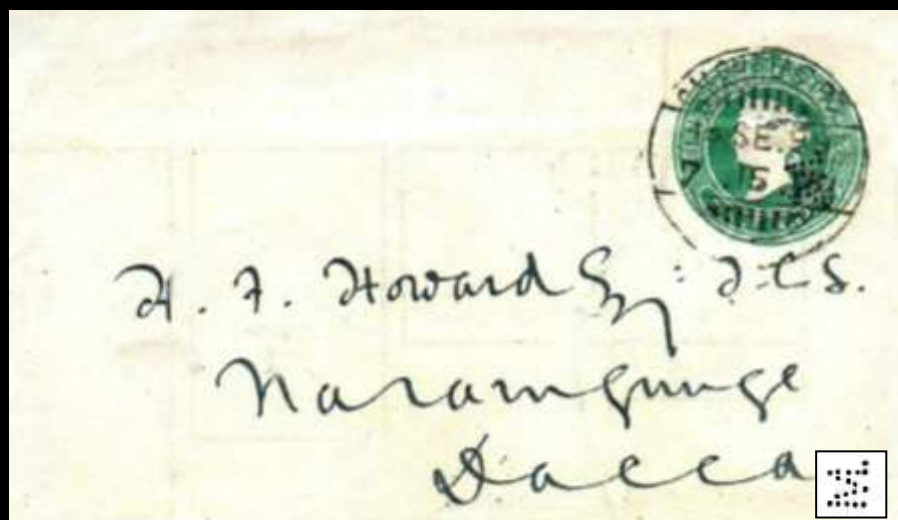 SE. 5
H. F. Howard Esq: I.C.S.
Naraingunge
Dacca